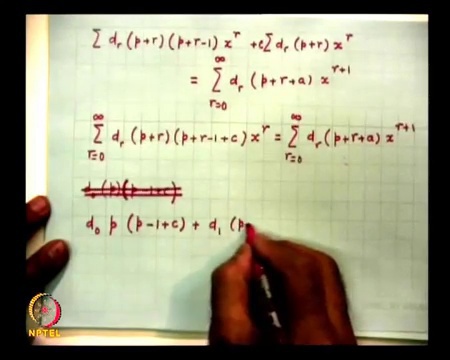 Σ d_r (p+r)(p+r-1) x^r + c Σ d_r (p+r) x^r
= Σ_{r=0}^{∞} d_r (p+r+a) x^{r+1}
Σ_{r=0}^{∞} d_r (p+r)(p+r-1+c) x^r = Σ_{r=0}^{∞} d_r (p+r+a) x^{r+1}
d_0 p (p-1+c) + d_1 (p
NPTEL